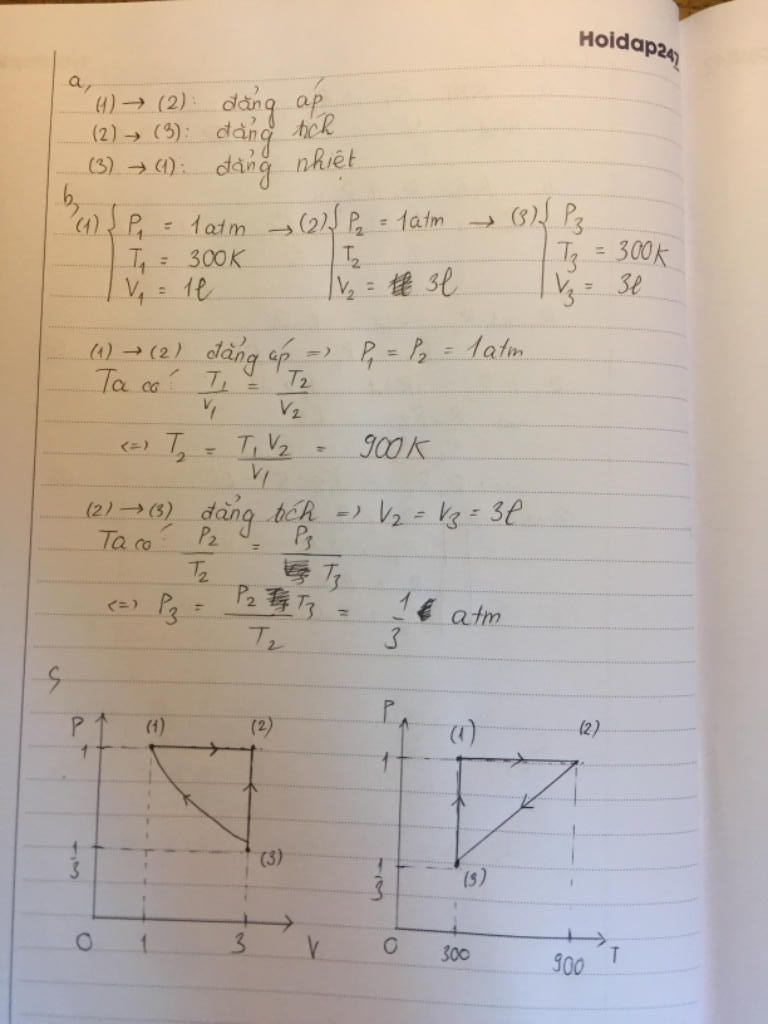 Hoidap247
a,
(1) → (2): đẳng áp
(2) → (3): đẳng tích
(3) → (1): đẳng nhiệt
b,
(1) { P₁ = 1atm → (2) { P₂ = 1atm → (3) { P₃
T₁ = 300K T₂ T₃ = 300K
V₁ = 1l V₂ = 3l V₃ = 3l
(1) → (2) đẳng áp => P₁ = P₂ = 1atm
Ta có: T₁/V₁ = T₂/V₂
<=> T₂ = T₁V₂/V₁ = 900K
(2) → (3) đẳng tích => V₂ = V₃ = 3l
Ta có: P₂/T₂ = P₃/T₃
<=> P₃ = P₂T₃/T₂ = 1/3 atm
P (1) (2)
1
1/3 (3)
O 1 3 V
P (1) (2)
1
1/3 (3)
O 300 900 T